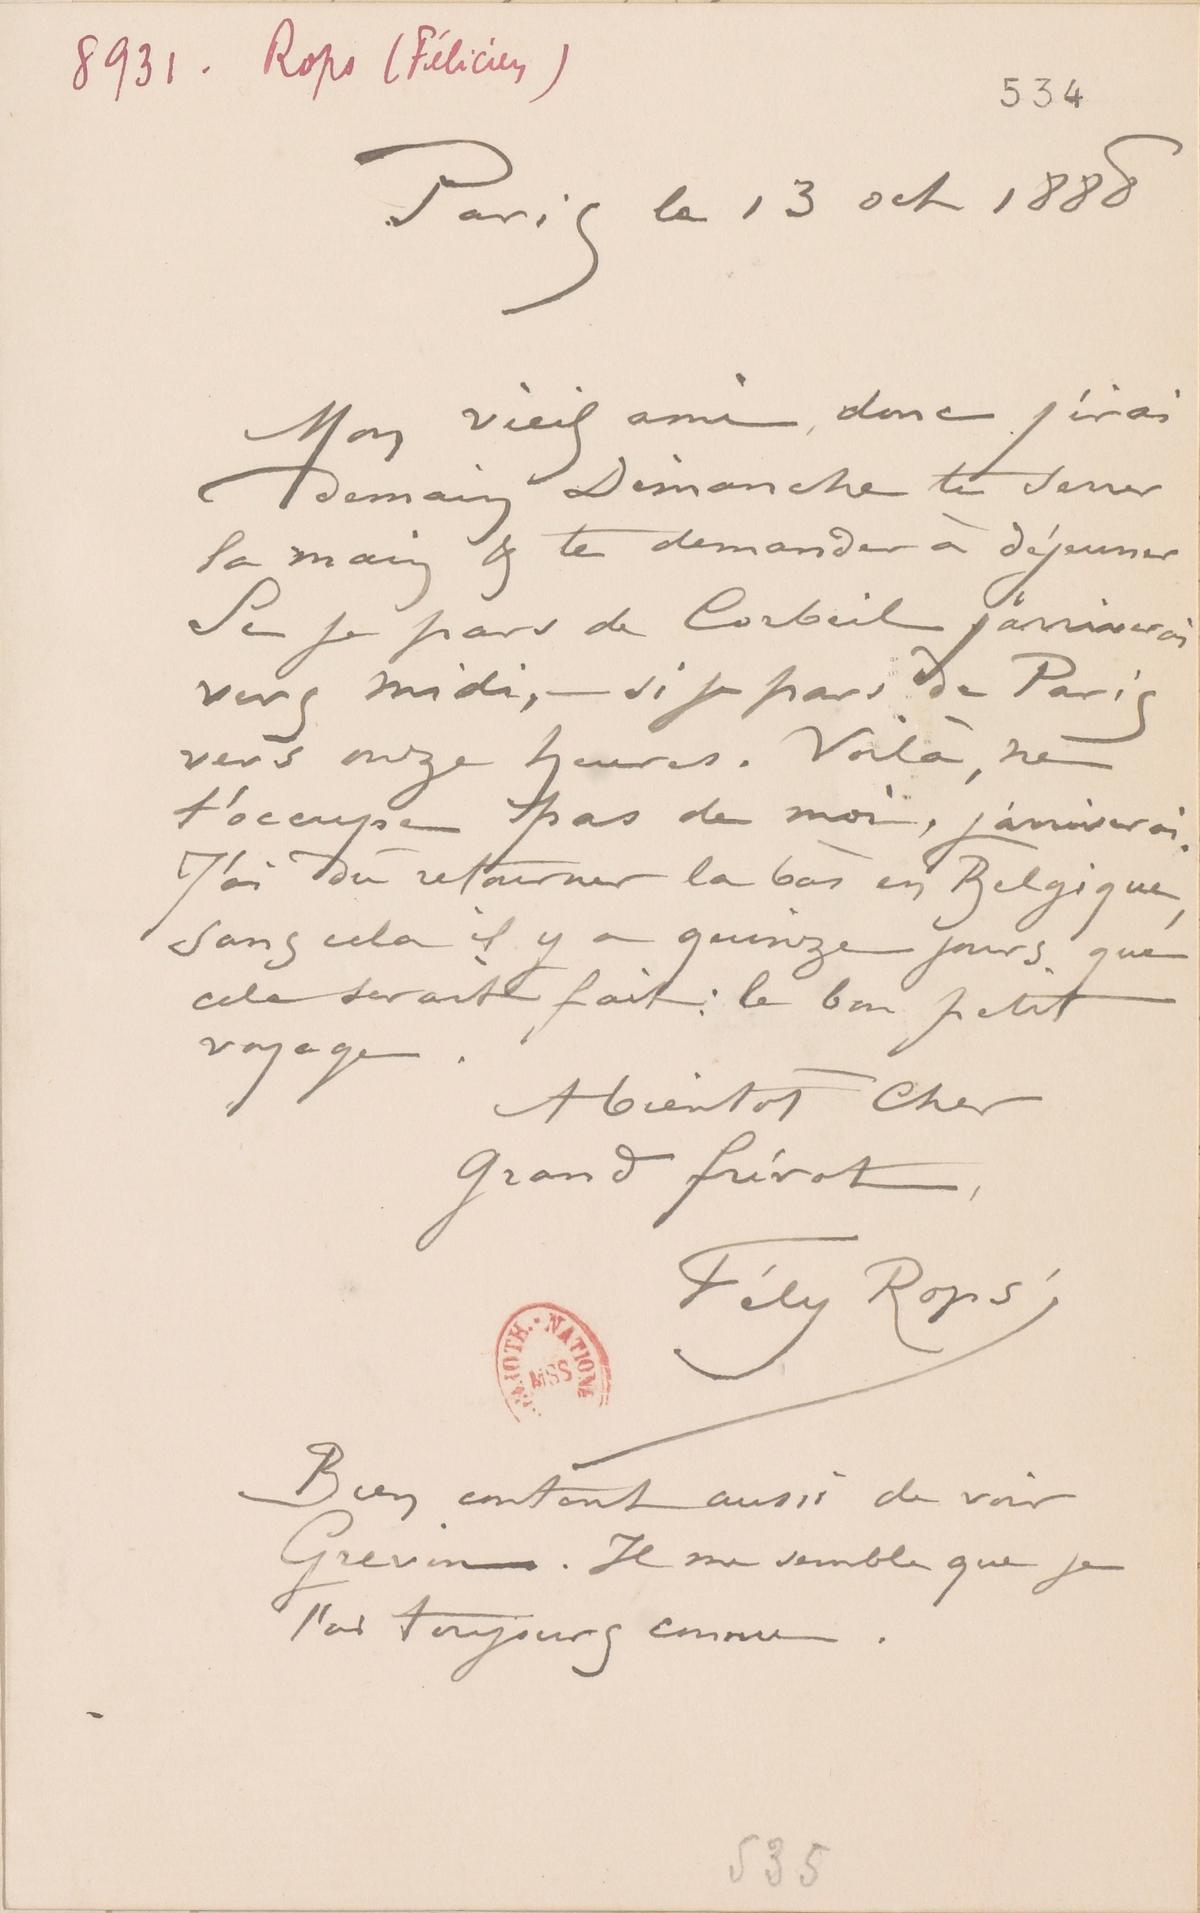 8931. Rops (Félicien)
534
Paris le 13 oct 1888
Mon vieil ami, donc j'irai
demain Dimanche te serrer
la main & te demander à déjeuner
Si je pars de Corbeil j'arriverai
vers midi, — si je pars de Paris
vers onze heures. Voilà, ne
t'occupe pas de moi, j'arriverai.
J'ai dû retourner la bàs en Belgique,
sans cela il y a quinze jours que
cela serait fait: le bon petit
voyage.
A bientôt Cher
Grand frérot,
Fély Rops
BIBLIOTH. NATIONALE
MSS
Bien content aussi de voir
Grevin. Il me semble que je
l'ai toujours connu.
535